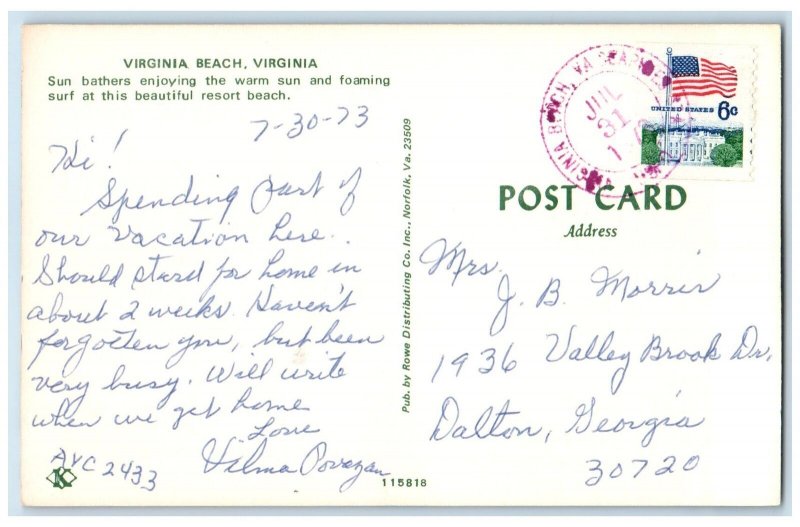 VIRGINIA BEACH, VIRGINIA
Sun bathers enjoying the warm sun and foaming
surf at this beautiful resort beach.
7-30-73
Hi!
Spending part of
our vacation here..
Should start for home in
about 2 weeks. Haven't
forgotten you, but been
very busy. Will write
when we get home
Love
Vilma
AVC 2433
K
115818
Pub. by Rowe Distributing Co. Inc., Norfolk, Va. 23509
VIRGINIA BEACH, VA
JUL
31
1
UNITED STATES 6c
POST CARD
Address
Mrs.
J. B. Morris
1936 Valley Brook Dr,
Dalton, Georgia
30720